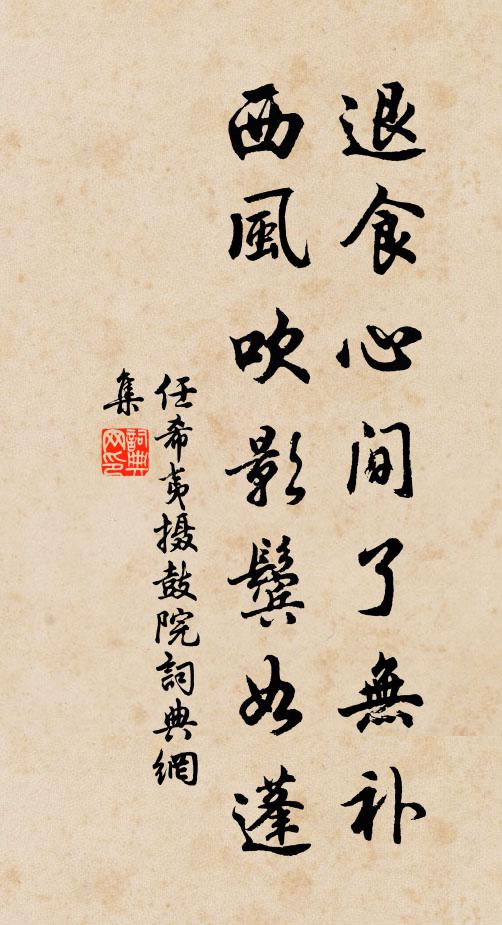 退食心間了無补
西風吹影鬓如蓬
任希夷摄鼓院詞典網
集
詞典
网印